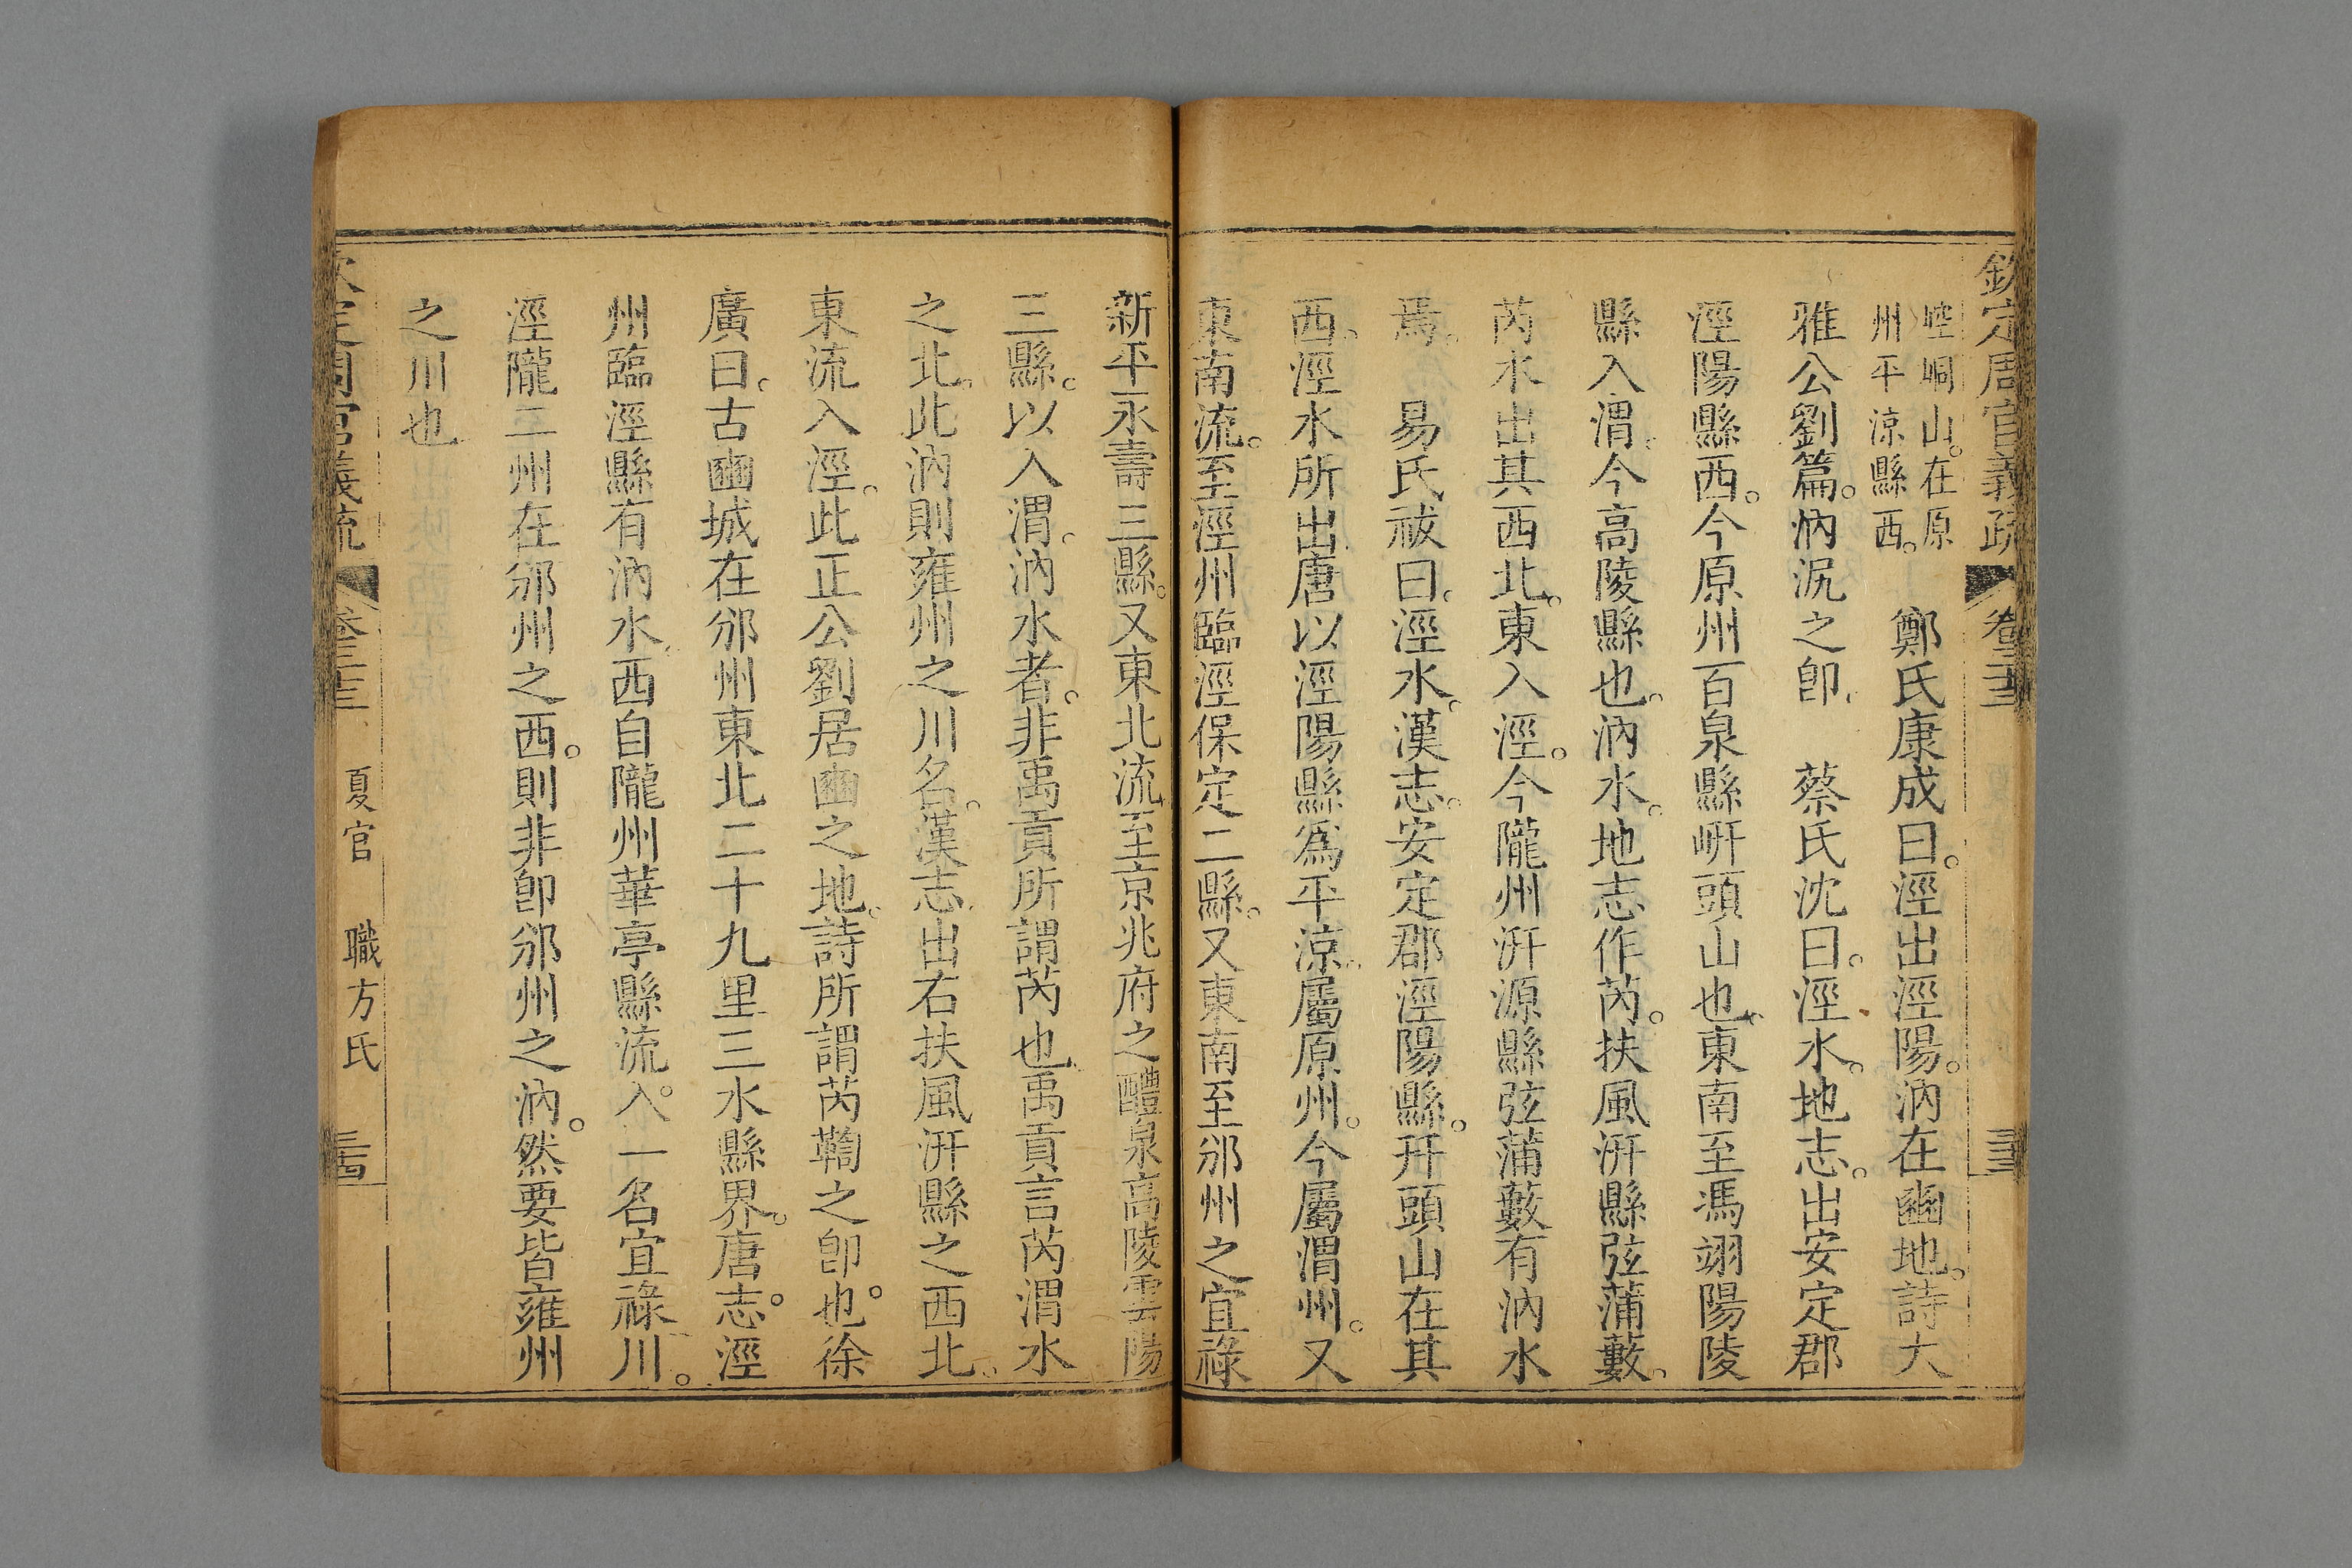 欽定周官義疏 卷三十三
崆峒山。在原
州平涼縣西。
鄭氏康成曰。涇出涇陽。汭在豳地。詩大
雅公劉篇。汭泥之卽 蔡氏沈曰。涇水。地志。出安定郡
涇陽縣西。今原州百泉縣岍頭山也。東南至馮翊陽陵
縣入渭。今高陵縣也。汭水。地志作芮。扶風汧縣弦蒲藪。
芮水出其西北。東入涇。今隴州汧源縣弦蒲藪有汭水
焉。 易氏祓曰。涇水。漢志。安定郡涇陽縣。幵頭山在其
西。涇水所出唐以涇陽縣爲平涼。屬原州。今屬渭州。又
東南流。至涇州臨涇保定二縣。又東南至邠州之宜祿
新平永壽三縣。又東北流至京兆府之醴泉高陵雲陽
三縣。以入渭。汭水者。非禹貢所謂芮也。禹貢言芮渭水
之北。此汭則雍州之川名。漢志出右扶風汧縣之西北。
東流入涇。此正公劉居豳之地。詩所謂芮鞫之卽也。徐
廣曰。古豳城在邠州東北二十九里三水縣界。唐志。涇
州臨涇縣有汭水。西自隴州華亭縣流入。一名宜祿川。
涇隴二州在邠州之西。則非卽邠州之汭。然要皆雍州
之川也
定周官義疏 卷三十三 夏官 職方氏 三古